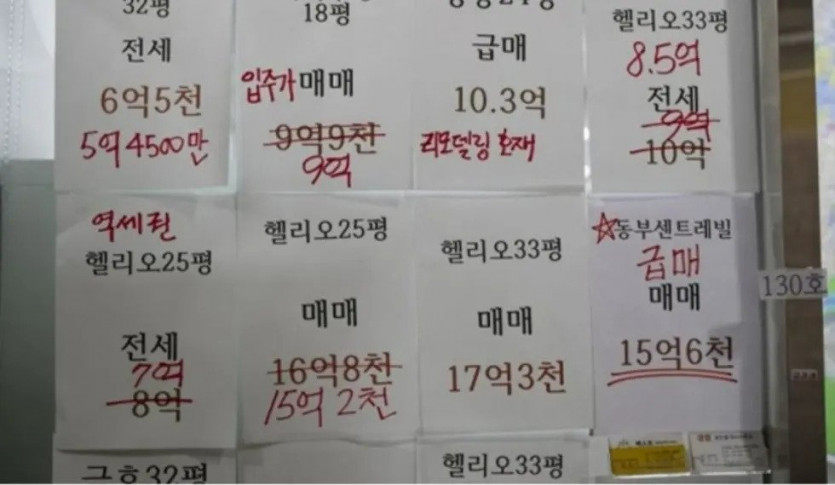 32평
전세
6억5천
5억 4500만
18평
입주가 매매
9억9천
9억
급매
10.3억
리모델링 호재
헬리오33평
8.5억
전세
9억
10억
역세권
헬리오25평
전세
7억
8억
헬리오25평
매매
16억8천
15억 2천
헬리오33평
매매
17억3천
☆동부센트레빌
급매
매매
15억6천
130호
금호32평
헬리오33평